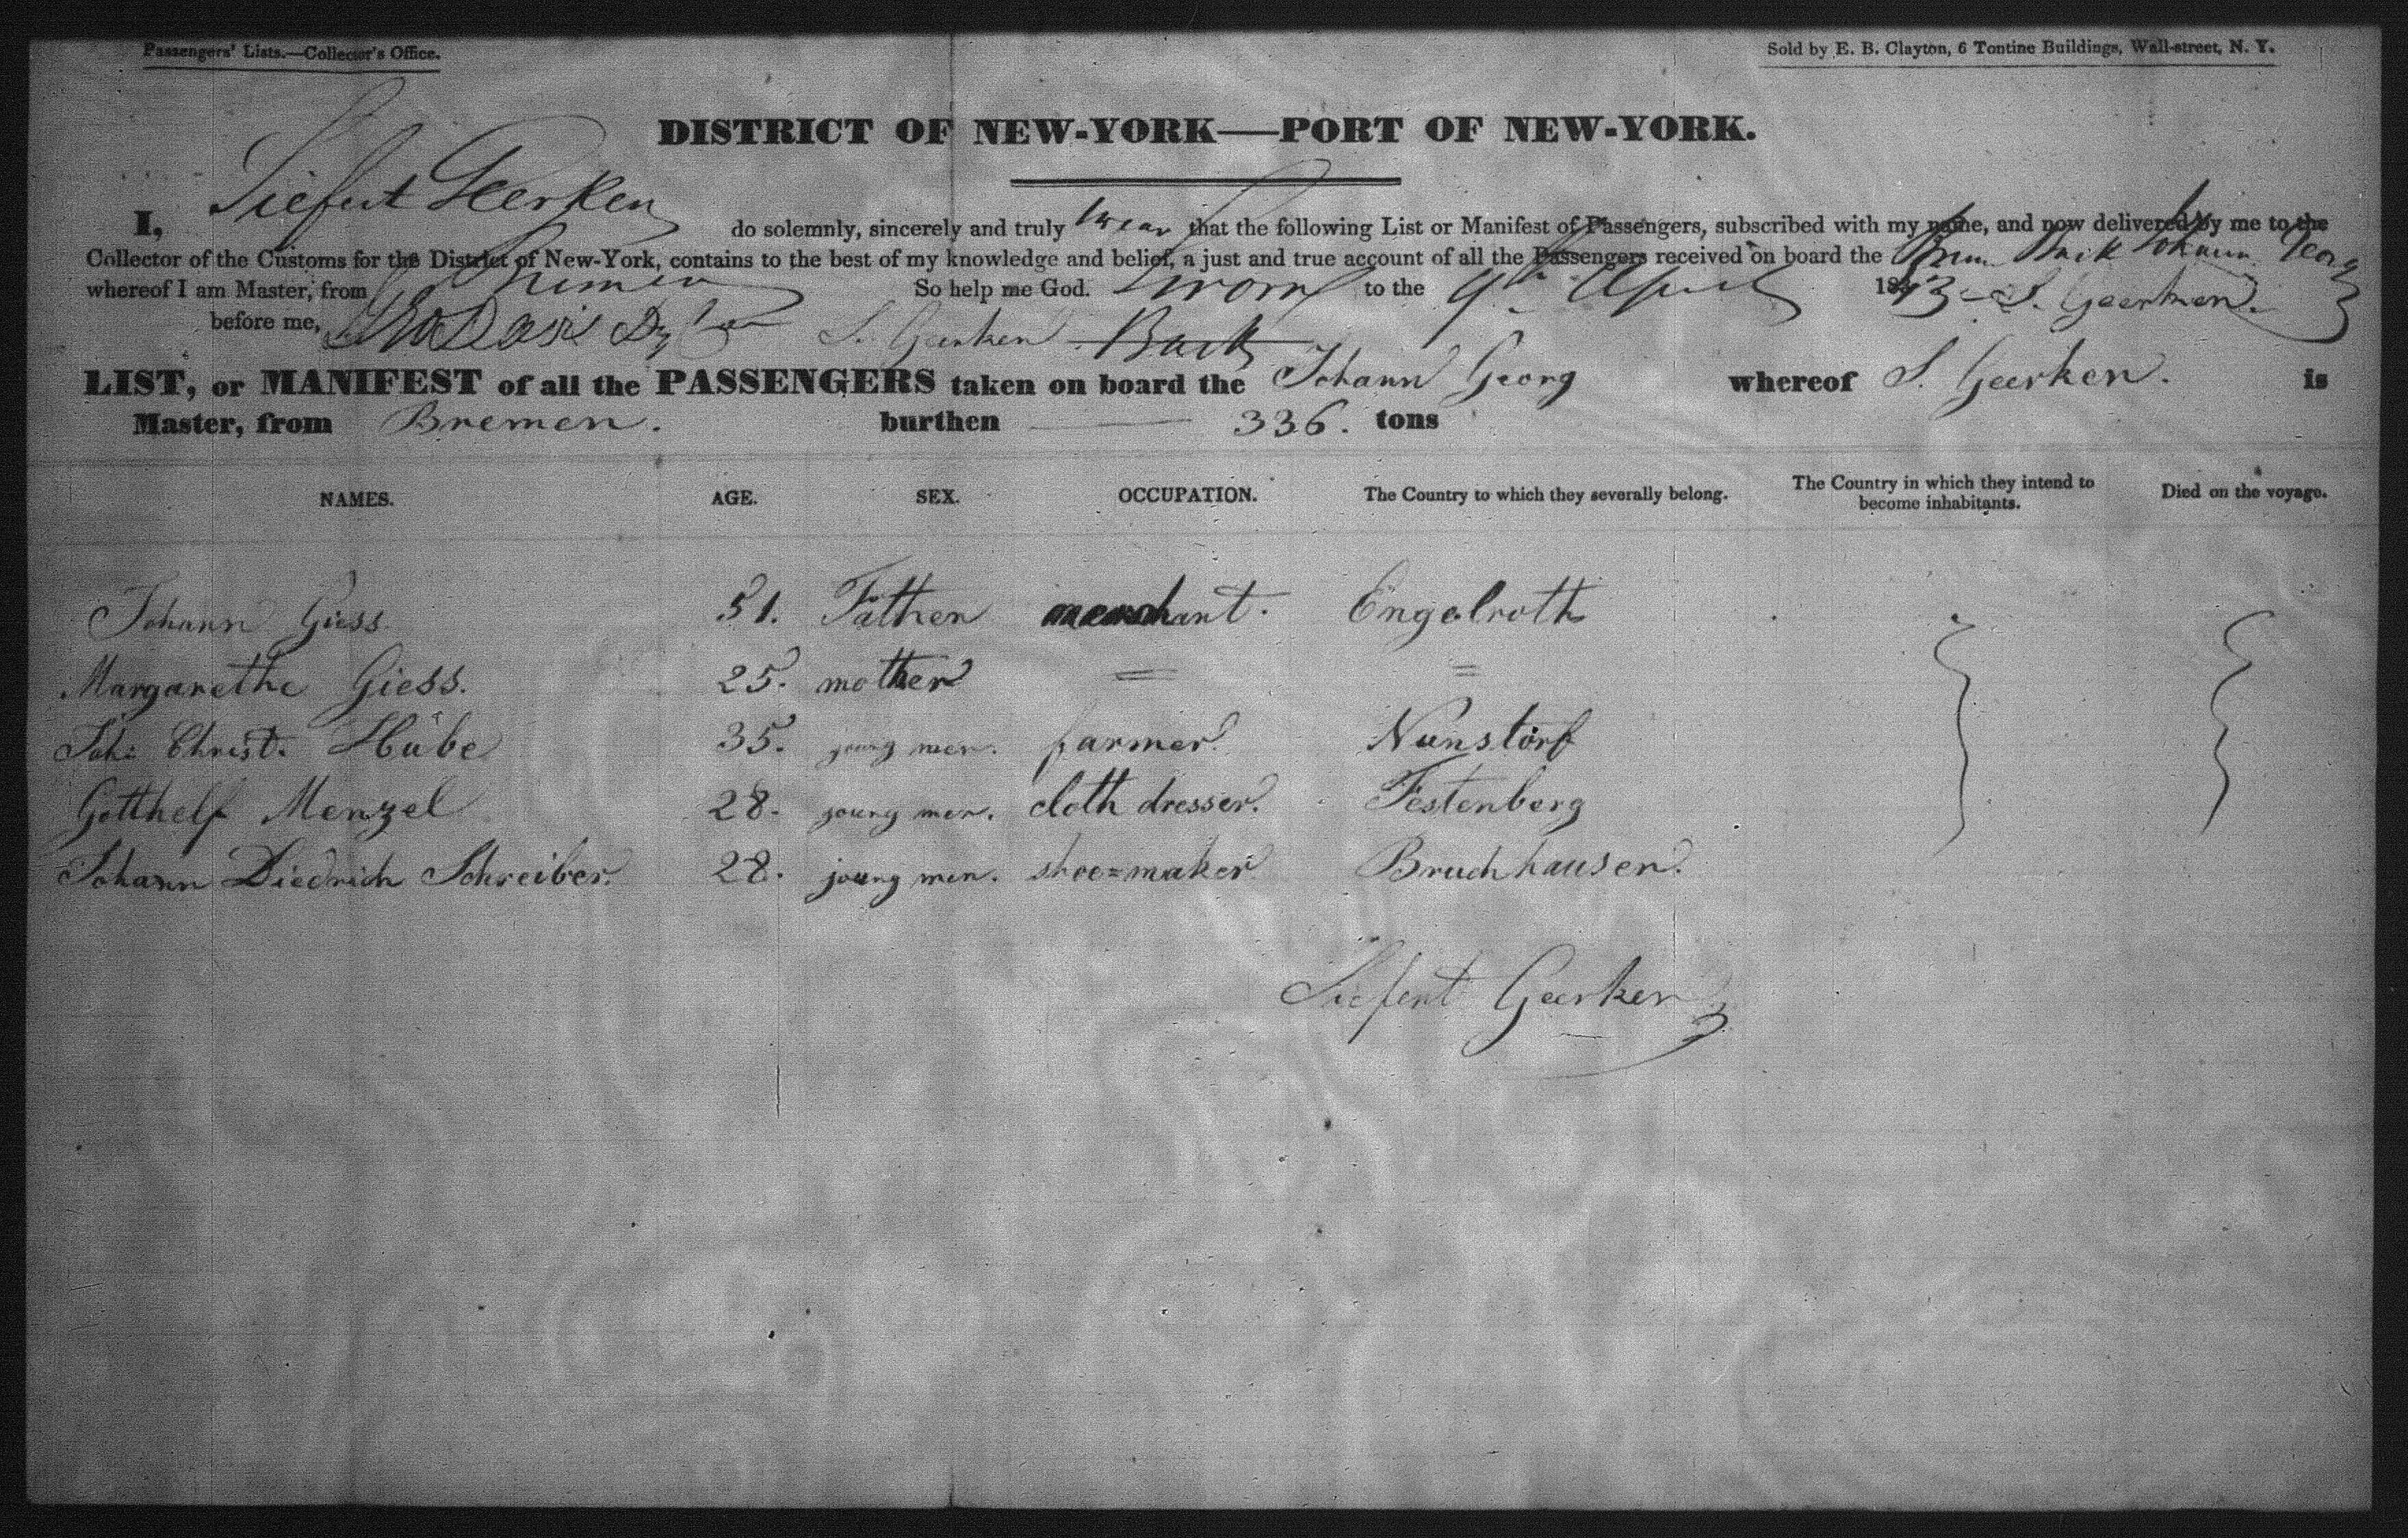 Passengers' Lists.—Collector's Office.
Sold by E. B. Clayton, 6 Tontine Buildings, Wall-street, N. Y.
DISTRICT OF NEW-YORK—PORT OF NEW-YORK.
I, Siefert Geerken do solemnly, sincerely and truly swear that the following List or Manifest of Passengers, subscribed with my name, and now delivered by me to the
Collector of the Customs for the District of New-York, contains to the best of my knowledge and belief, a just and true account of all the Passengers received on board the Brem Bark Johann Georg
whereof I am Master, from Bremen So help me God. Sworn to the 9th April 1843 S. Geerken
before me, S. Geerken Bark
LIST, or MANIFEST of all the PASSENGERS taken on board the Johann Georg whereof S. Geerken. is
Master, from Bremen. burthen 336. tons
NAMES. AGE. SEX. OCCUPATION. The Country to which they severally belong. The Country in which they intend to become inhabitants. Died on the voyage.
Johann Giess 51. Father merchant. Engelroth
Margarethe Giess. 25. mother = =
Joh: Christ. Hübe 35. young men. farmer. Nunstorf
Gotthelf Menzel 28. young men. cloth dresser. Festenberg
Johann Diedrich Schreiber. 28. young men. shoe=maker Bruchhausen.
Siefert Geerken